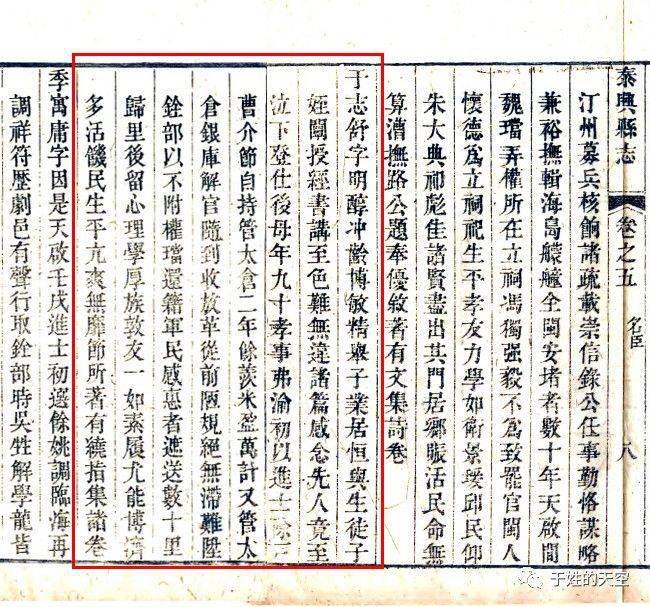 泰興縣志
卷之五
名臣
八
汀州募兵核餉諸疏載崇信錄公任事勤恪謀略
兼裕撫輯海島艨艟全閩安堵者數十年天啟間
魏璫弄權所在立祠馮獨强毅不爲致罷官閩人
懷德爲立祠祀生平孝友力學如衛景瑗邱民仰
朱大典祁彪佳諸賢盡出其門居鄉賑活民命無
算漕撫路公題奉優敘著有文集詩卷
于志舒字明醇冲齡博敏精舉子業居恒與生徒子
姪闡授經書講至色難無違諸篇感念先人竟至
泣下登仕後母年九十孝事弗渝初以進士除
曹介節自持管太倉二年餘羨米盈萬計又管太
倉銀庫解官隨到收放革從前陋規絕無滯難陞
銓部以不附權璫還籍軍民感惠者遮送數十里
歸里後留心理學厚族敦友一如素履尤能博濟
多活饑民生平亢爽無靡節所著有繞指集諸卷
季寓庸字因是天啟壬戌進士初選餘姚調臨海再
調祥符歷劇邑有聲行取銓部時吳甡解學龍皆
于姓的天空